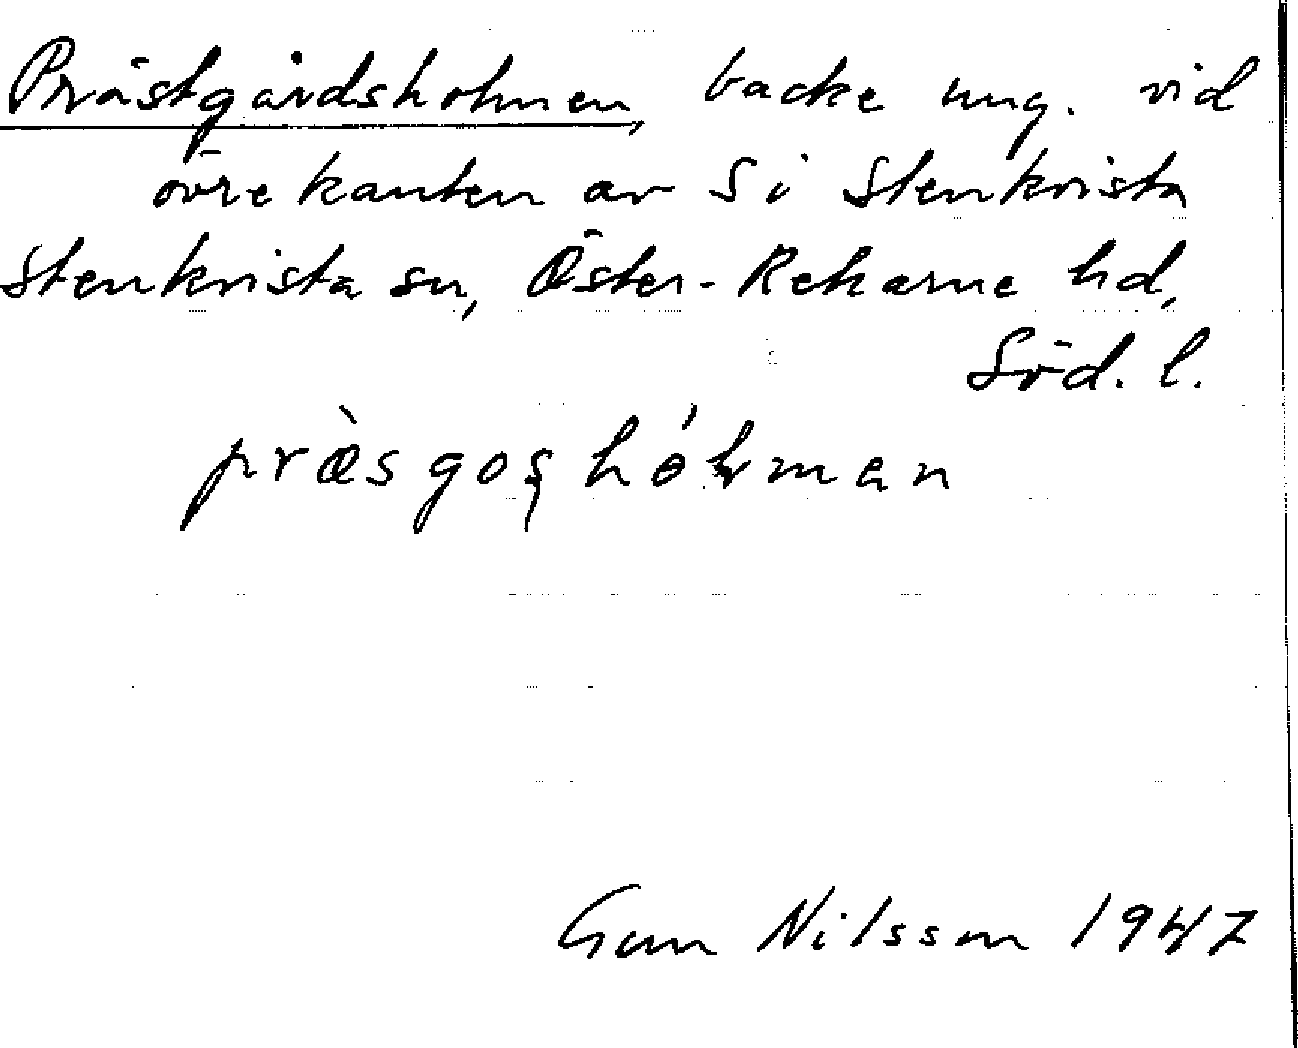 Prästgårdsholmen, backe ung. vid
övre kanten av S i Stenkvista
Stenkvista sn, Öster-Rekarne hd,
Söd. l.
præ̀sgoʂhólman
Gun Nilsson 1947